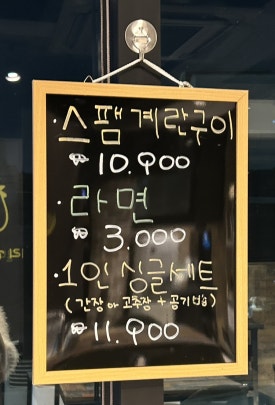 · 스팸계란구이
₩ 10.900
· 라면
₩ 3.000
· 1인 싱글세트
(간장 or 고추장 + 공기밥)
₩ 11.900